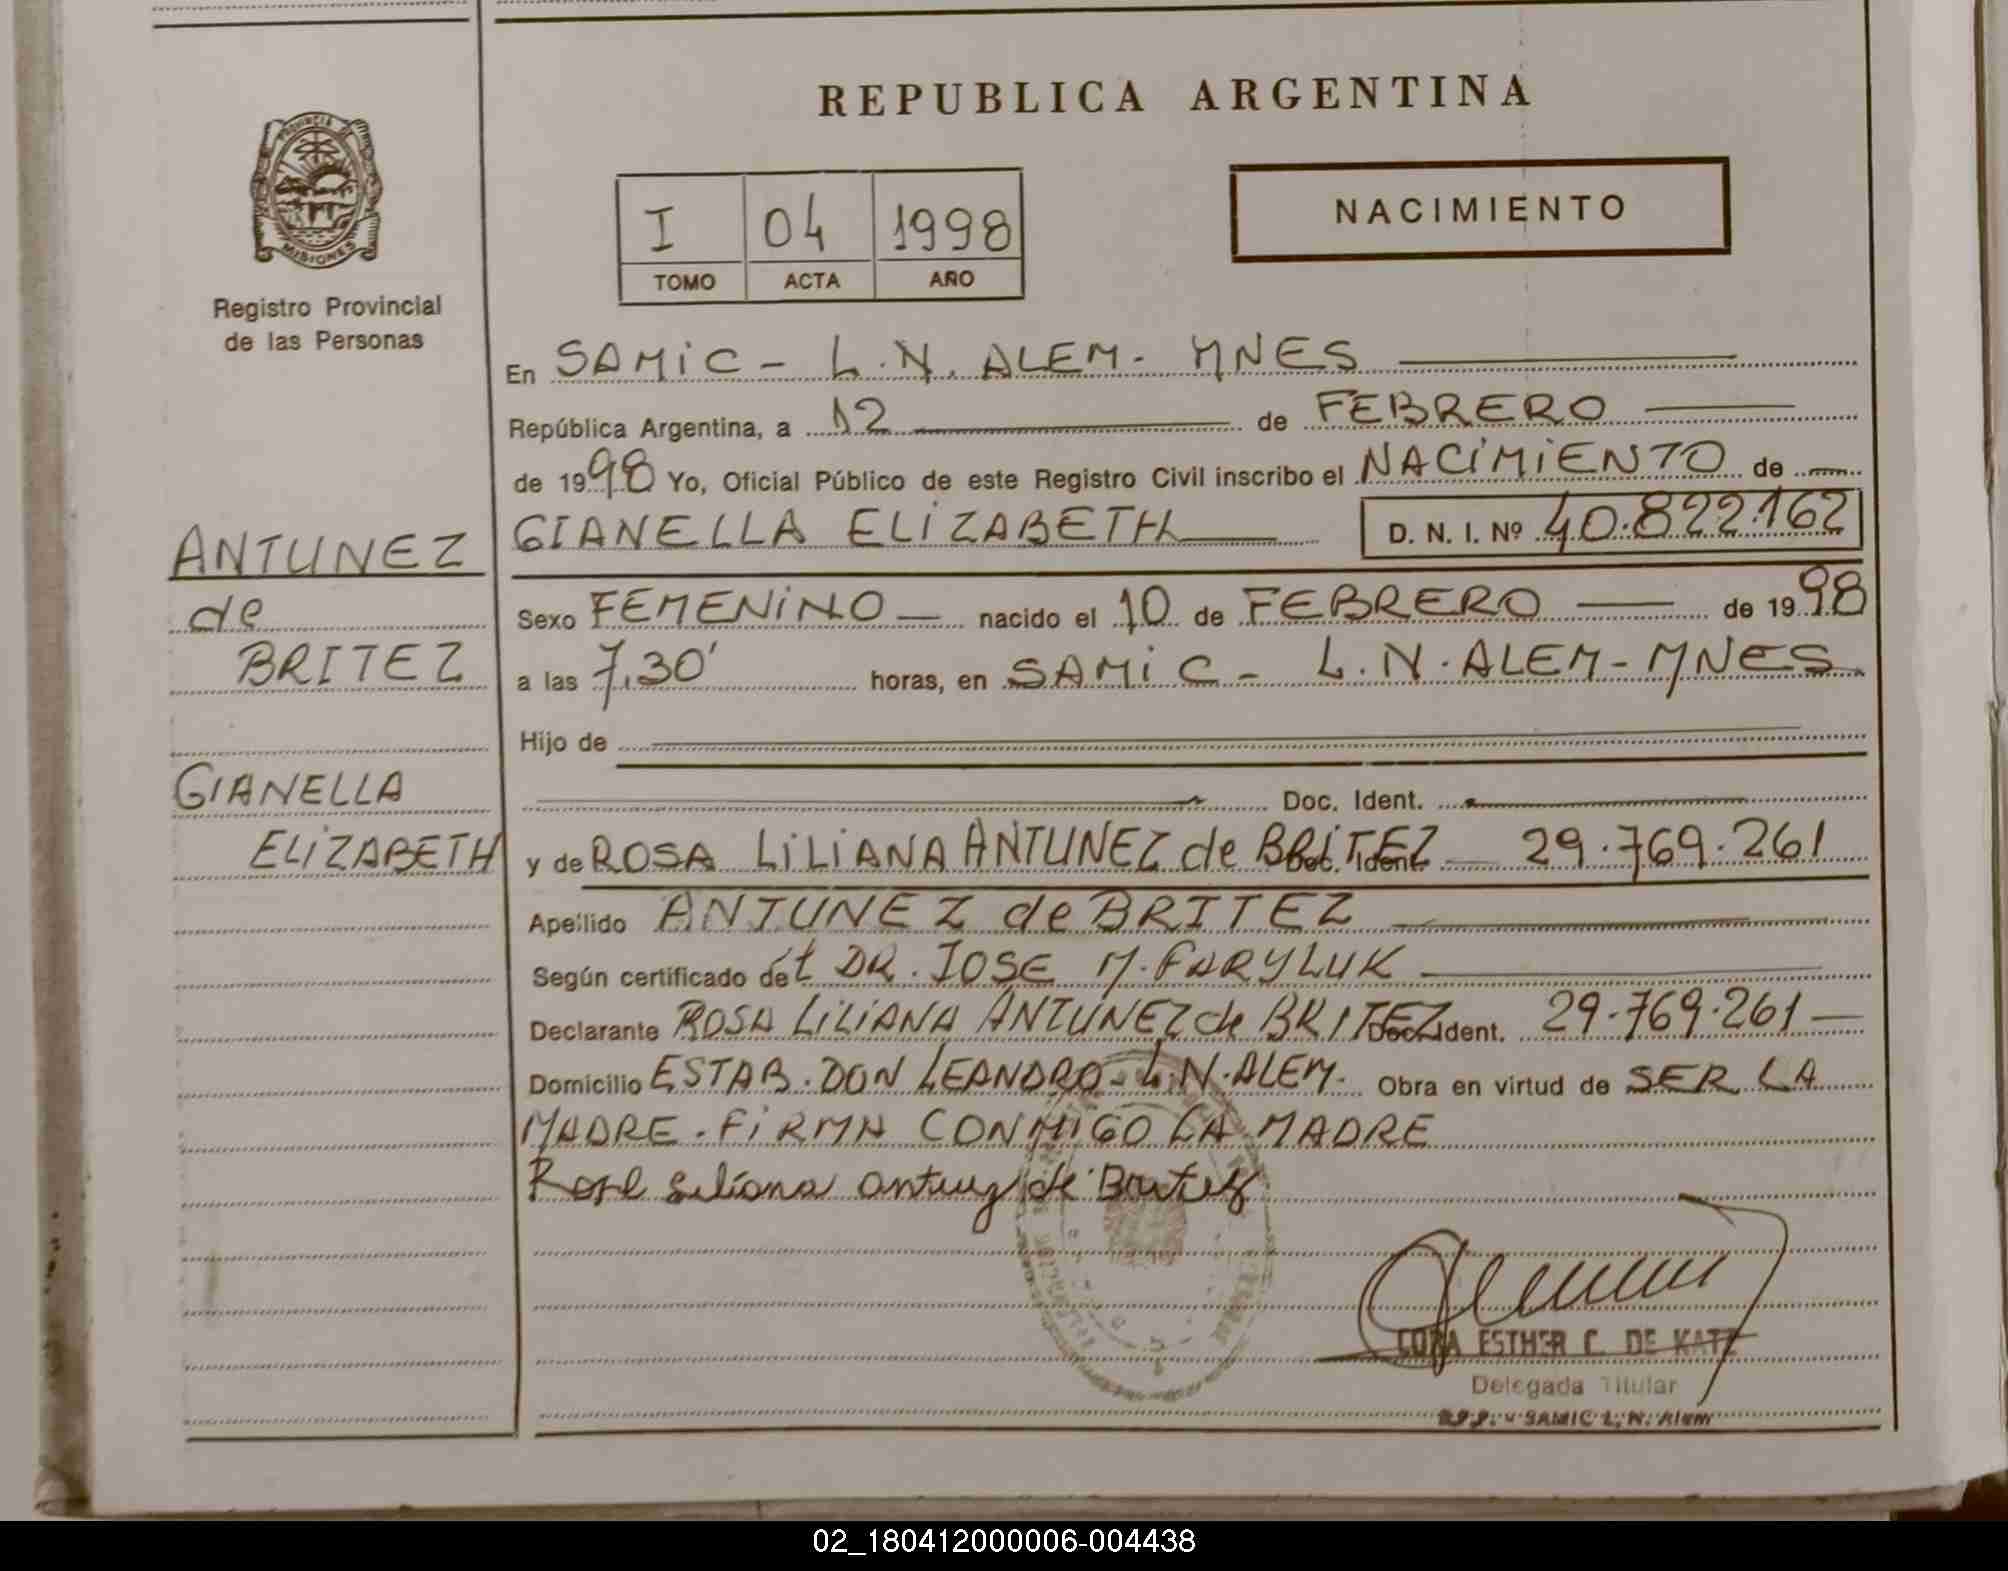 REPUBLICA ARGENTINA
PROVINCIA DE
MISIONES
Registro Provincial
de las Personas
I 04 1998
TOMO ACTA AÑO
NACIMIENTO
En SAMIC - L.N. ALEM - MNES
República Argentina, a 12 de FEBRERO
de 1998 Yo, Oficial Público de este Registro Civil inscribo el NACIMIENTO de
GIANELLA ELIZABETH D. N. I. Nº 40.822.162
ANTUNEZ
de
BRITEZ
GIANELLA
ELIZABETH
Sexo FEMENINO nacido el 10 de FEBRERO de 1998
a las 7,30' horas, en SAMIC - L.N. ALEM - MNES
Hijo de
Doc. Ident.
y de ROSA LILIANA ANTUNEZ de BRITEZ Doc. Ident. 29.769.261
Apellido ANTUNEZ de BRITEZ
Según certificado del DR. JOSE M. FARYLUK
Declarante ROSA LILIANA ANTUNEZ de BRITEZ Doc. Ident. 29.769.261
Domicilio ESTAB. DON LEANDRO - L.N. ALEM. Obra en virtud de SER LA
MADRE. FIRMA CONMIGO LA MADRE
Rosa Liliana Antunez de Britez
CORA ESTHER C. DE KATZ
Delegada Titular
SAMIC L. N. Alem
02_180412000006-004438